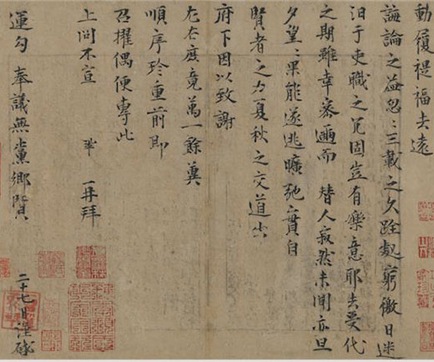 動履禔福去遠
誨論之益忽〻三載之久跧處窮徼日迷
汨于吏職之冗固豈有樂意耶去受代
之期雖幸密邇而替人寂然未聞亦旦
夕望〻果能遂逃曠弛實自
賢者之力夏秋之交道出
府下因以致謝
左右庶竟萬一餘冀
順序珍重前即
召擢偶便專此
上問不宣 鞏 再拜
運勾 奉議無黨鄉賢
二十七日謹啟